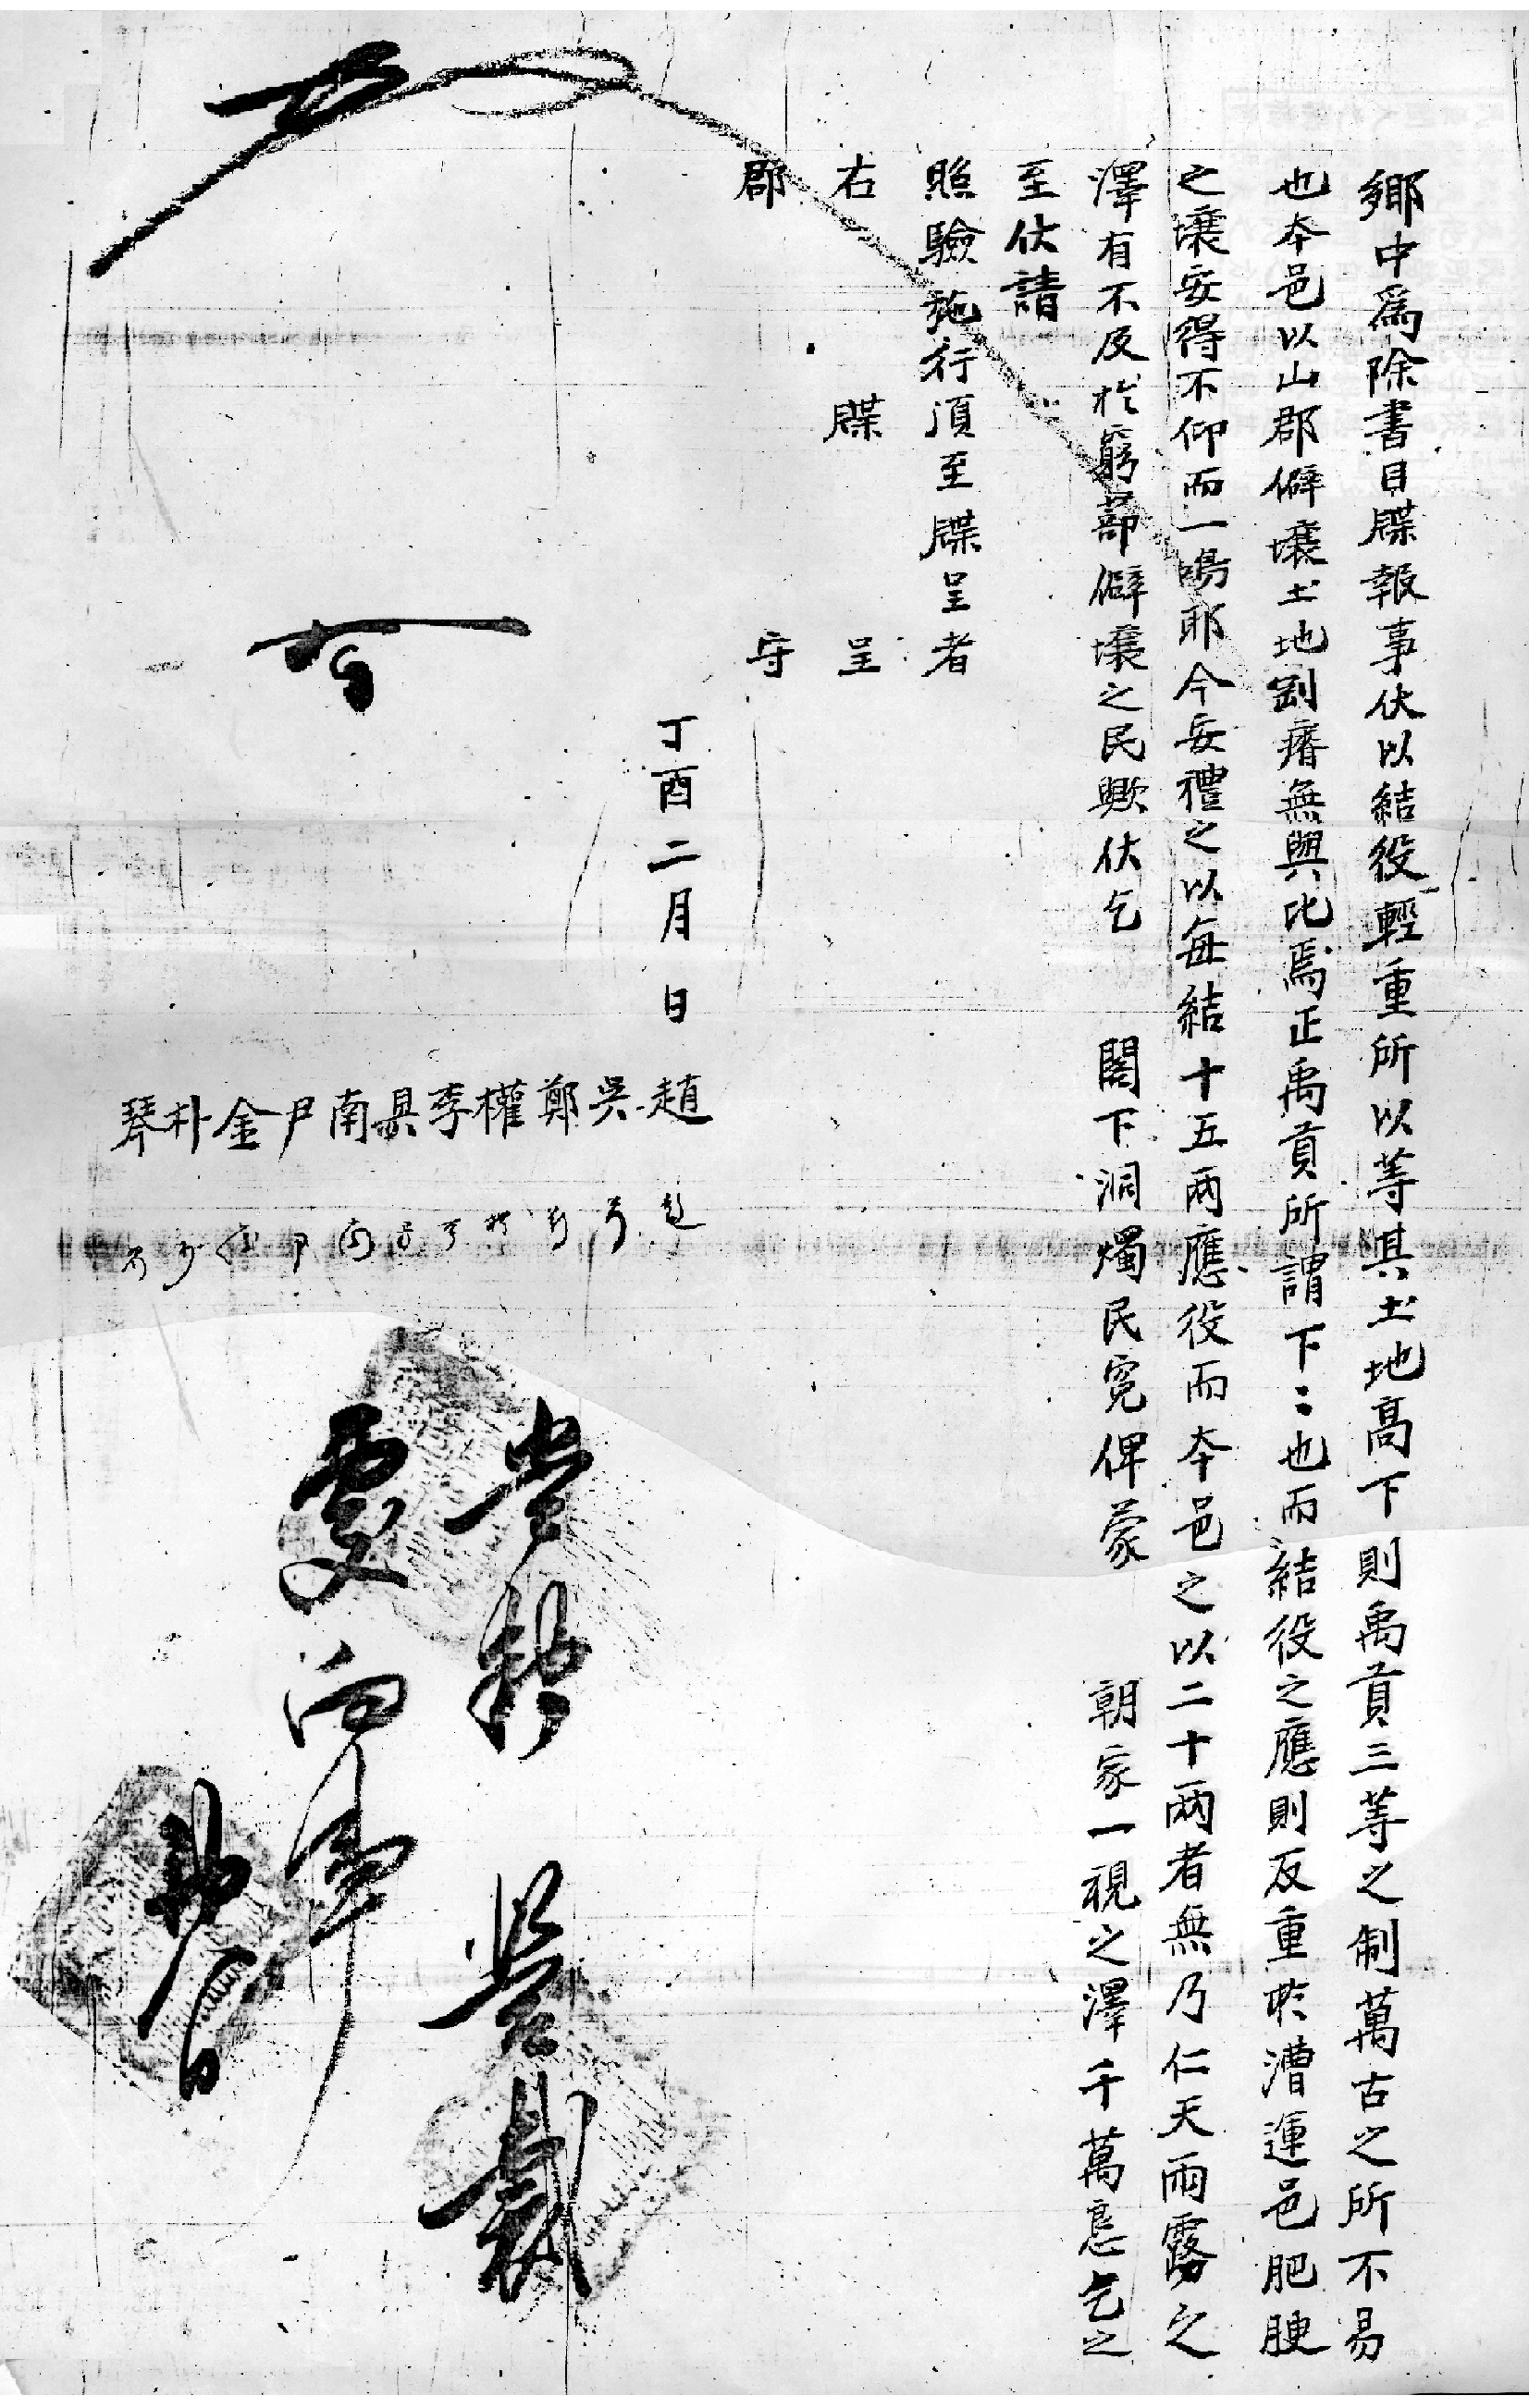 鄕中爲除書目牒報事伏以結役輕重所以等其土地高下則禹貢三等之制萬古之所不易
也本邑以山郡僻壤土地剛瘠無與比焉正禹貢所謂下〻也而結役之應則反重於漕運邑肥腴
之壤安得不仰而一鳴耶今安禮之以每結十五兩應役而本邑之以二十兩者無乃仁天雨露之
澤有不及於窮蔀僻壤之民歟伏乞 閤下洞燭民寃俾蒙 朝家一視之澤千萬懇乞之
至伏請
照驗施行須至牒呈者
右 牒 呈
郡 守
丁酉二月 日 趙
吳
鄭
權
李
具
南
尹
金
朴
琴